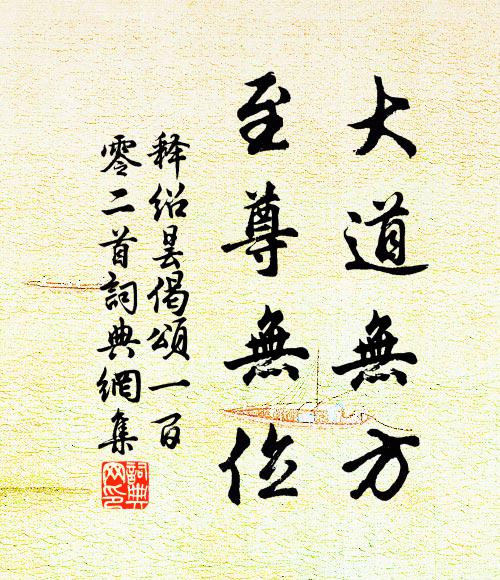 大道無方
至尊無位
釋紹曇偈頌一百
零二首詞典網集
詞典网印